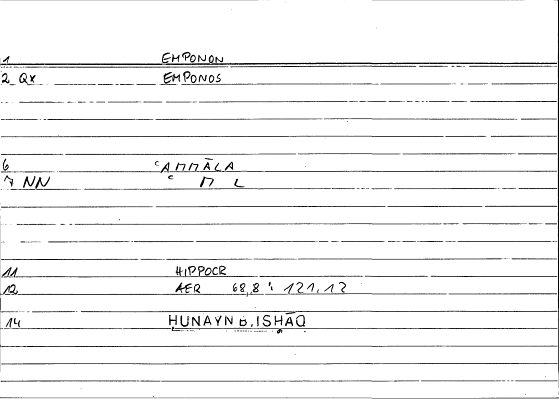 1 EMPONON
2 QX EMPONOS
6 ʿAMMĀLA
7 NN ʿ M L
11 HIPPOCR
12 AER 68,8 : 121,12
14 HUNAYN B. ISḤĀQ